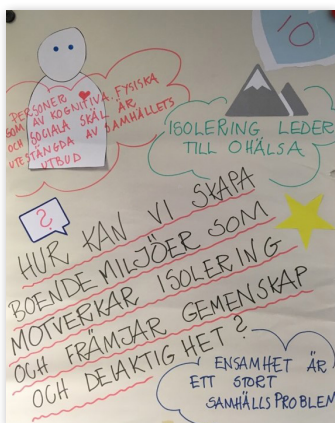 10
PERSONER
SOM AV KOGNITIVA, FYSISKA
OCH SOCIALA SKÄL ÄR
UTESTÄNGDA AV SAMHÄLLETS
UTBUD
ISOLERING LEDER
TILL OHÄLSA
?
HUR KAN VI SKAPA
BOENDE MILJÖER SOM
MOTVERKAR ISOLERING
OCH FRÄMJAR GEMENSKAP
OCH DELAKTIG HET?
ENSAMHET ÄR
ETT STORT
SAMHÄLLSPROBLEM